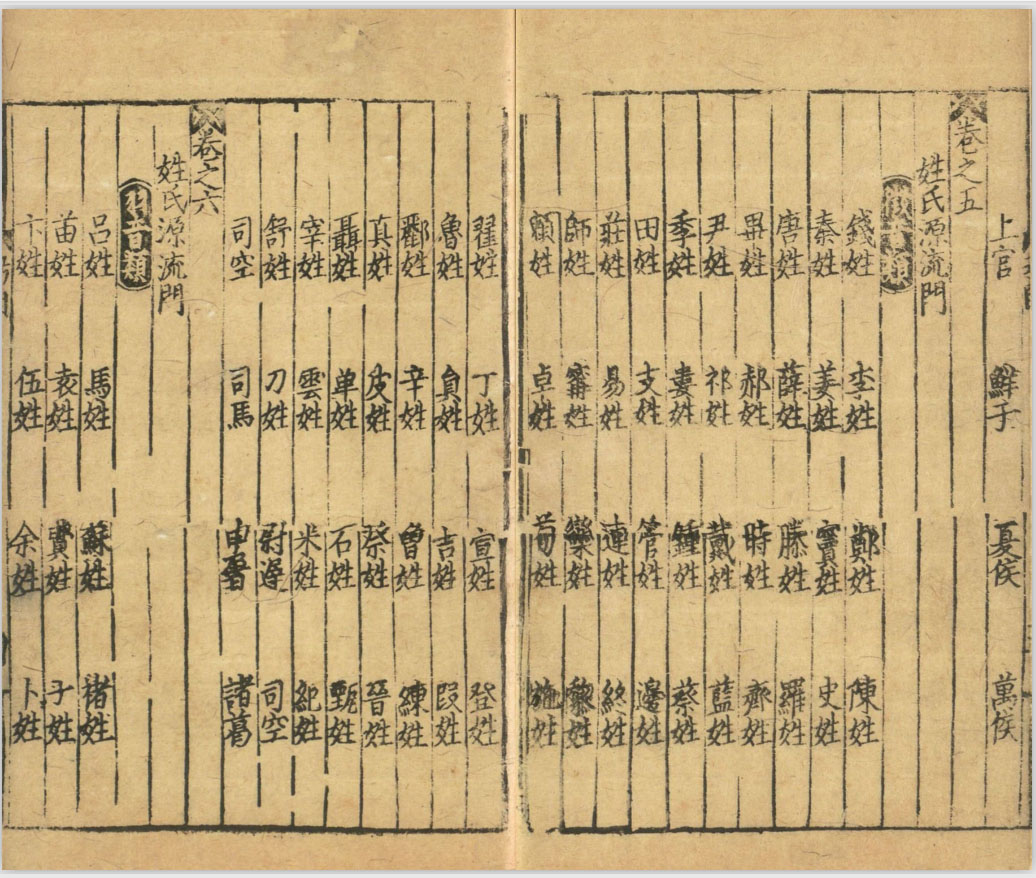 上官 鮮于 夏侯 萬俟
卷之五
姓氏源流門
徵音類
錢姓 李姓 鄭姓 陳姓
秦姓 姜姓 竇姓 史姓
唐姓 薛姓 滕姓 羅姓
畢姓 郝姓 時姓 齊姓
尹姓 祁姓 戴姓 藍姓
季姓 婁姓 鍾姓 蔡姓
田姓 支姓 管姓 邊姓
莊姓 易姓 連姓 終姓
師姓 甯姓 欒姓 黎姓
賴姓 卓姓 荀姓 施姓
翟姓 丁姓 宣姓 登姓
魯姓 貟姓 吉姓 段姓
酈姓 辛姓 曾姓 練姓
真姓 皮姓 祭姓 晉姓
聶姓 单姓 石姓 甄姓
宰姓 雲姓 米姓 紀姓
舒姓 刀姓 尉遲 司空
司空 司馬 申屠 諸葛
卷之六
姓氏源流門
羽音類
呂姓 馬姓 蘇姓 褚姓
苗姓 袁姓 費姓 于姓
卞姓 伍姓 余姓 卜姓